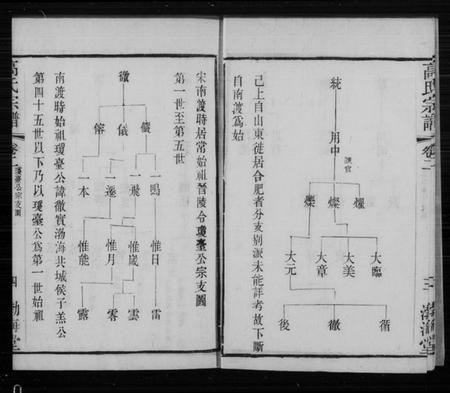 高氏宗譜
卷二
二
渤海堂
統
用中
讓官
燦
燦
燿
大臨
大美
大章
大元
循
徹
後
己上自山東徙居合肥者分支別派未能詳考故下斷
自南渡為始
宋南渡時居常始祖晉陵令瓊臺公宗支圖
第一世至第五世
徹
儀
儀
傛
一鶚
一飛
一遜
一本
惟日
惟歲
惟月
惟能
雷
雲
零
露
南渡時始祖瓊臺公諱徹實渤海共城侯子羔公
第四十五世以下乃以瓊臺公為第一世始祖
高氏宗譜
卷二
瓊臺公宗支圖
四
渤海堂